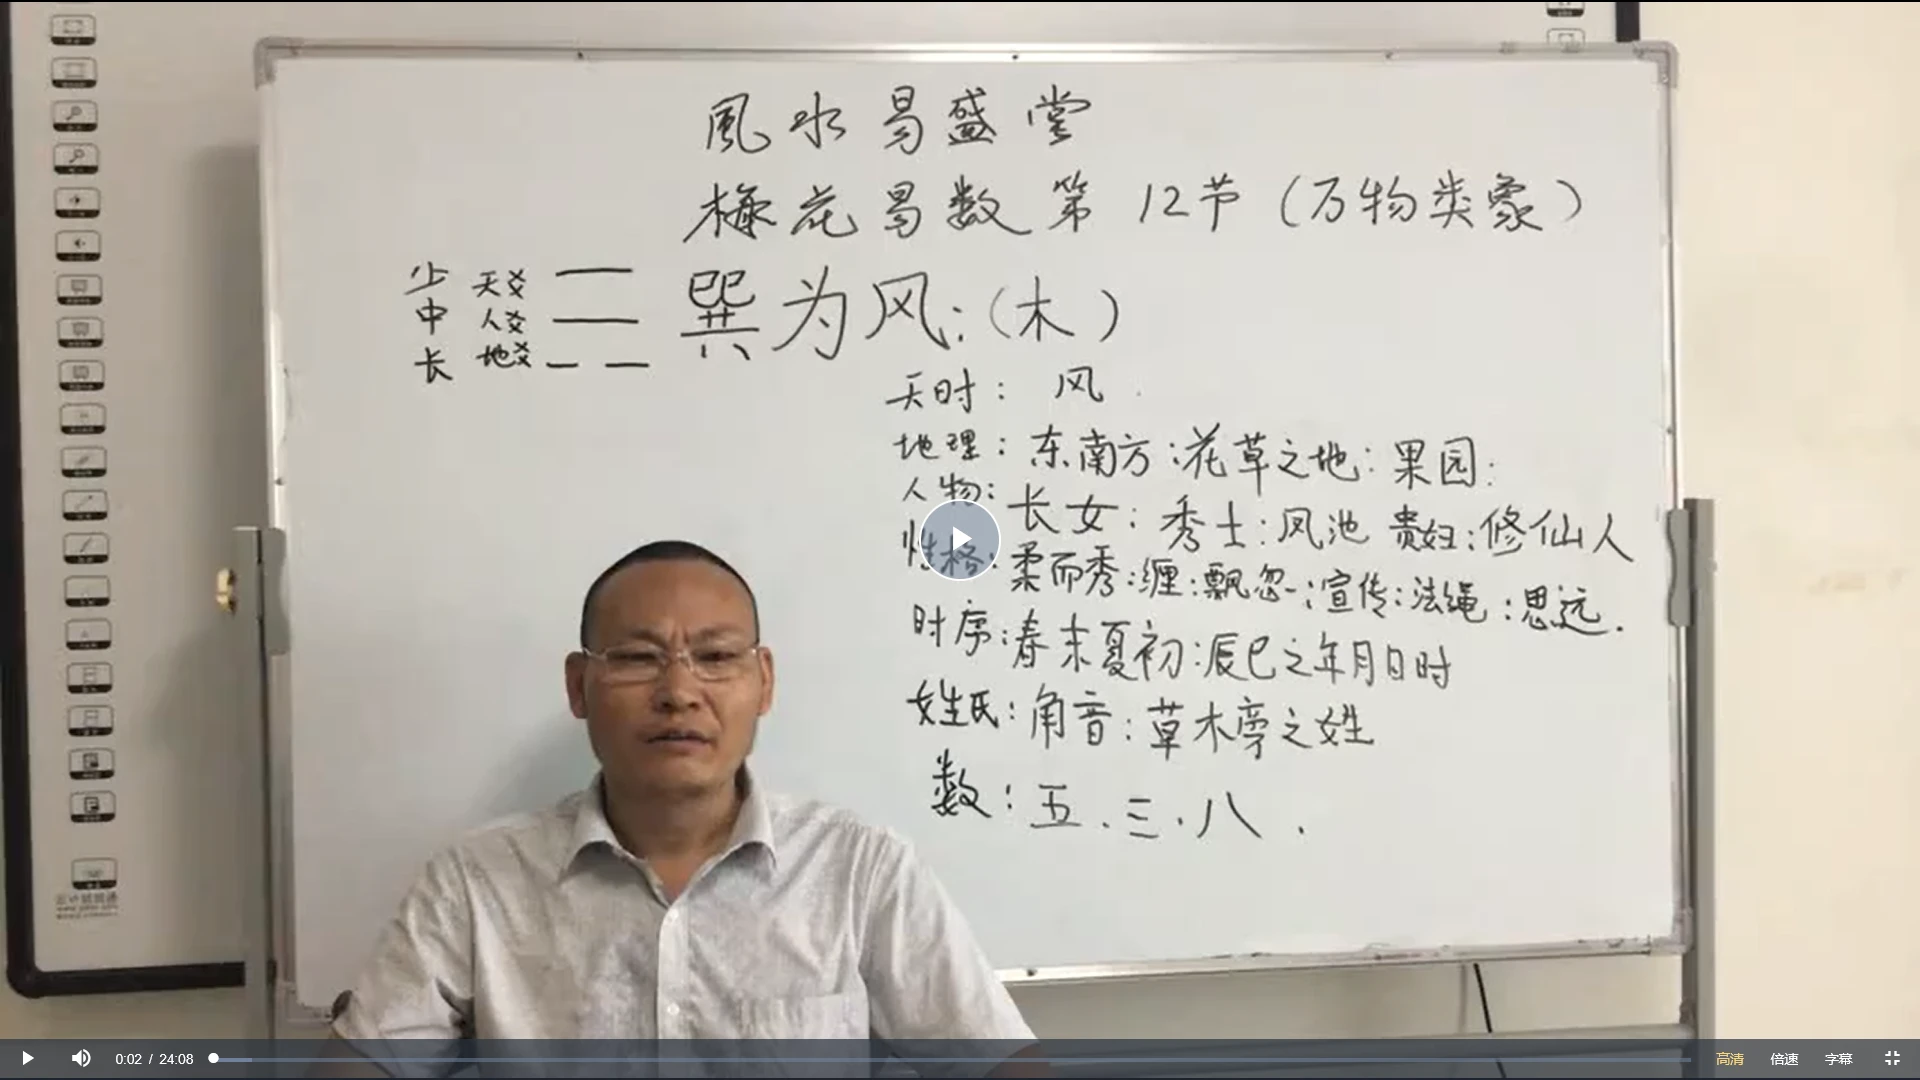 風水易盛堂
梅花易数第12节(万物类象)
少 天爻
中 人爻
长 地爻
巽为风:(木)
天时: 风.
地理: 东南方:花草之地:果园:
人物: 长女:秀士:风池 贵妇:修仙人
性格: 柔而秀:缠:飘忽:宣传:法绳:思远.
时序:春末夏初:辰巳之年月日时
姓氏:角音:草木旁之姓
数: 五.三.八.
0:02 / 24:08
高清 倍速 字幕